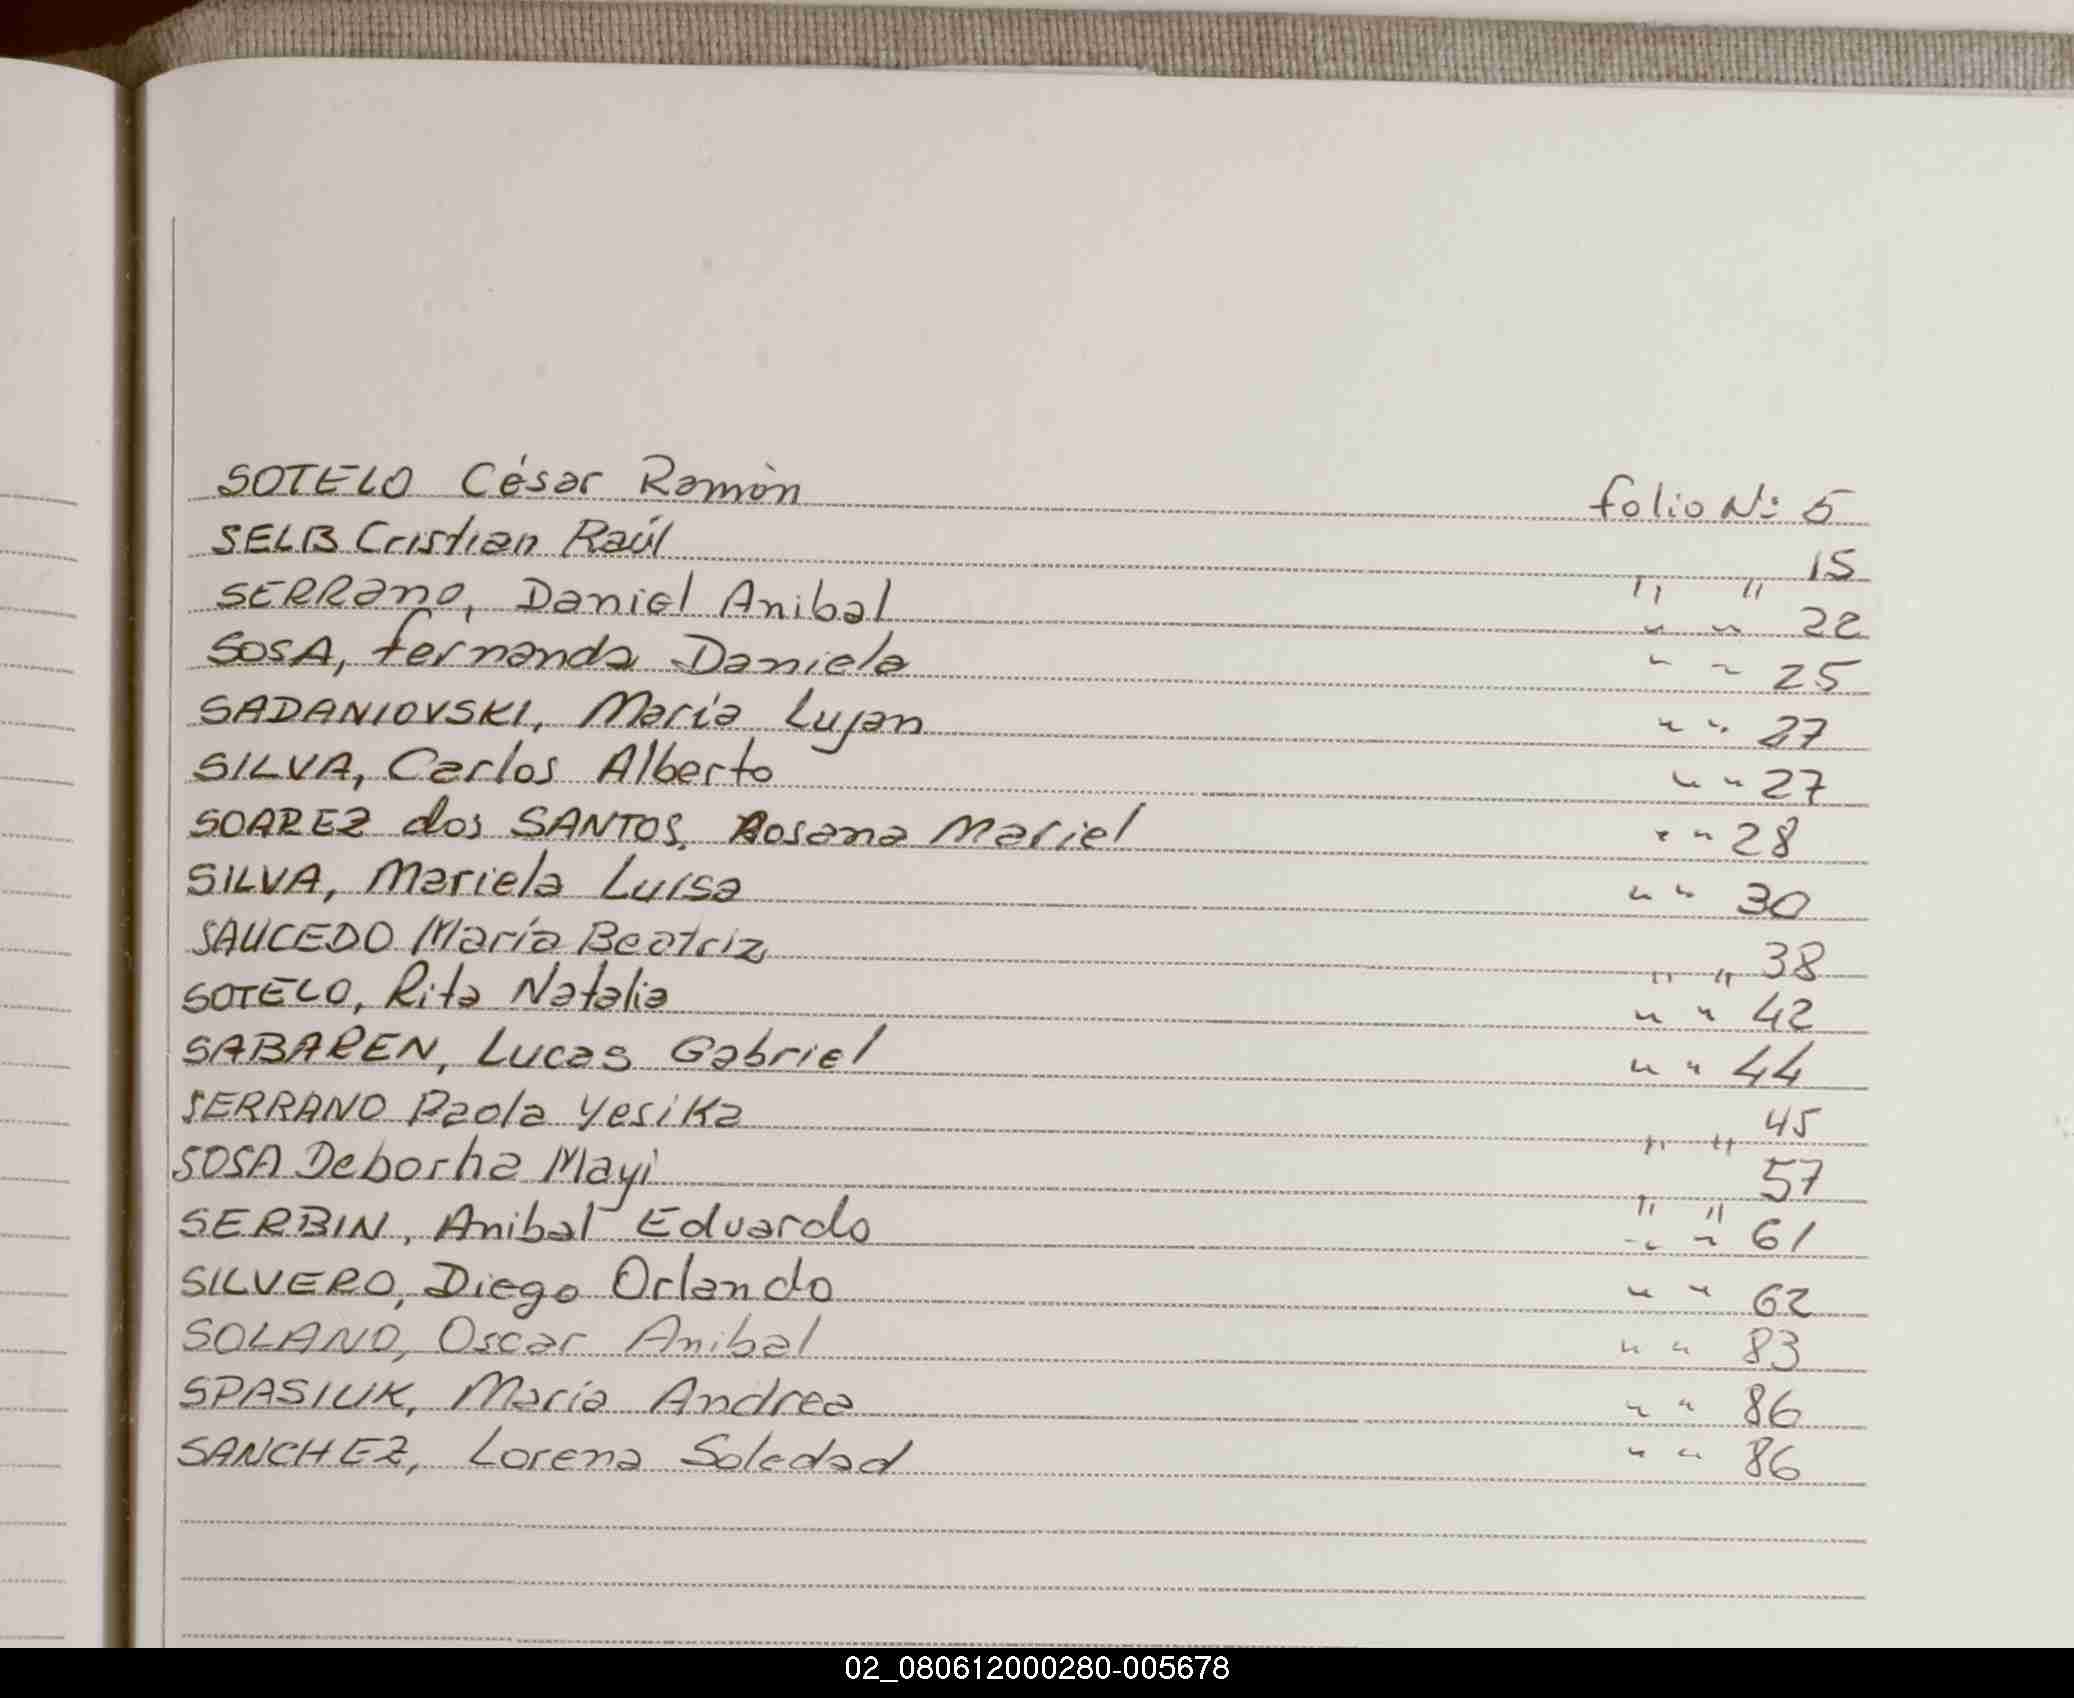 SOTELO César Ramòn folio Nº 5
SELB Cristian Raúl " " 15
SERRano, Daniel Anibal " " 22
SOSA, Fernanda Daniela " " 25
SADANIOVSKI, María Lujan " " 27
SILVA, Carlos Alberto " " 27
SOAREZ dos SANTOS, Rosana Mariel " " 28
SILVA, Mariela Luisa " " 30
SAUCEDO María Beatriz " " 38
SOTELO, Rita Natalia " " 42
SABAREN, Lucas Gabriel " " 44
SERRANO Paola Yesika " " 45
SOSA Deborha Mayi " " 57
SERBIN, Anibal Eduardo " " 61
SILVERO, Diego Orlando " " 62
SOLANO, Oscar Anibal " " 83
SPASIUK, María Andrea " " 86
SANCHEZ, Lorena Soledad " " 86
02_080612000280-005678